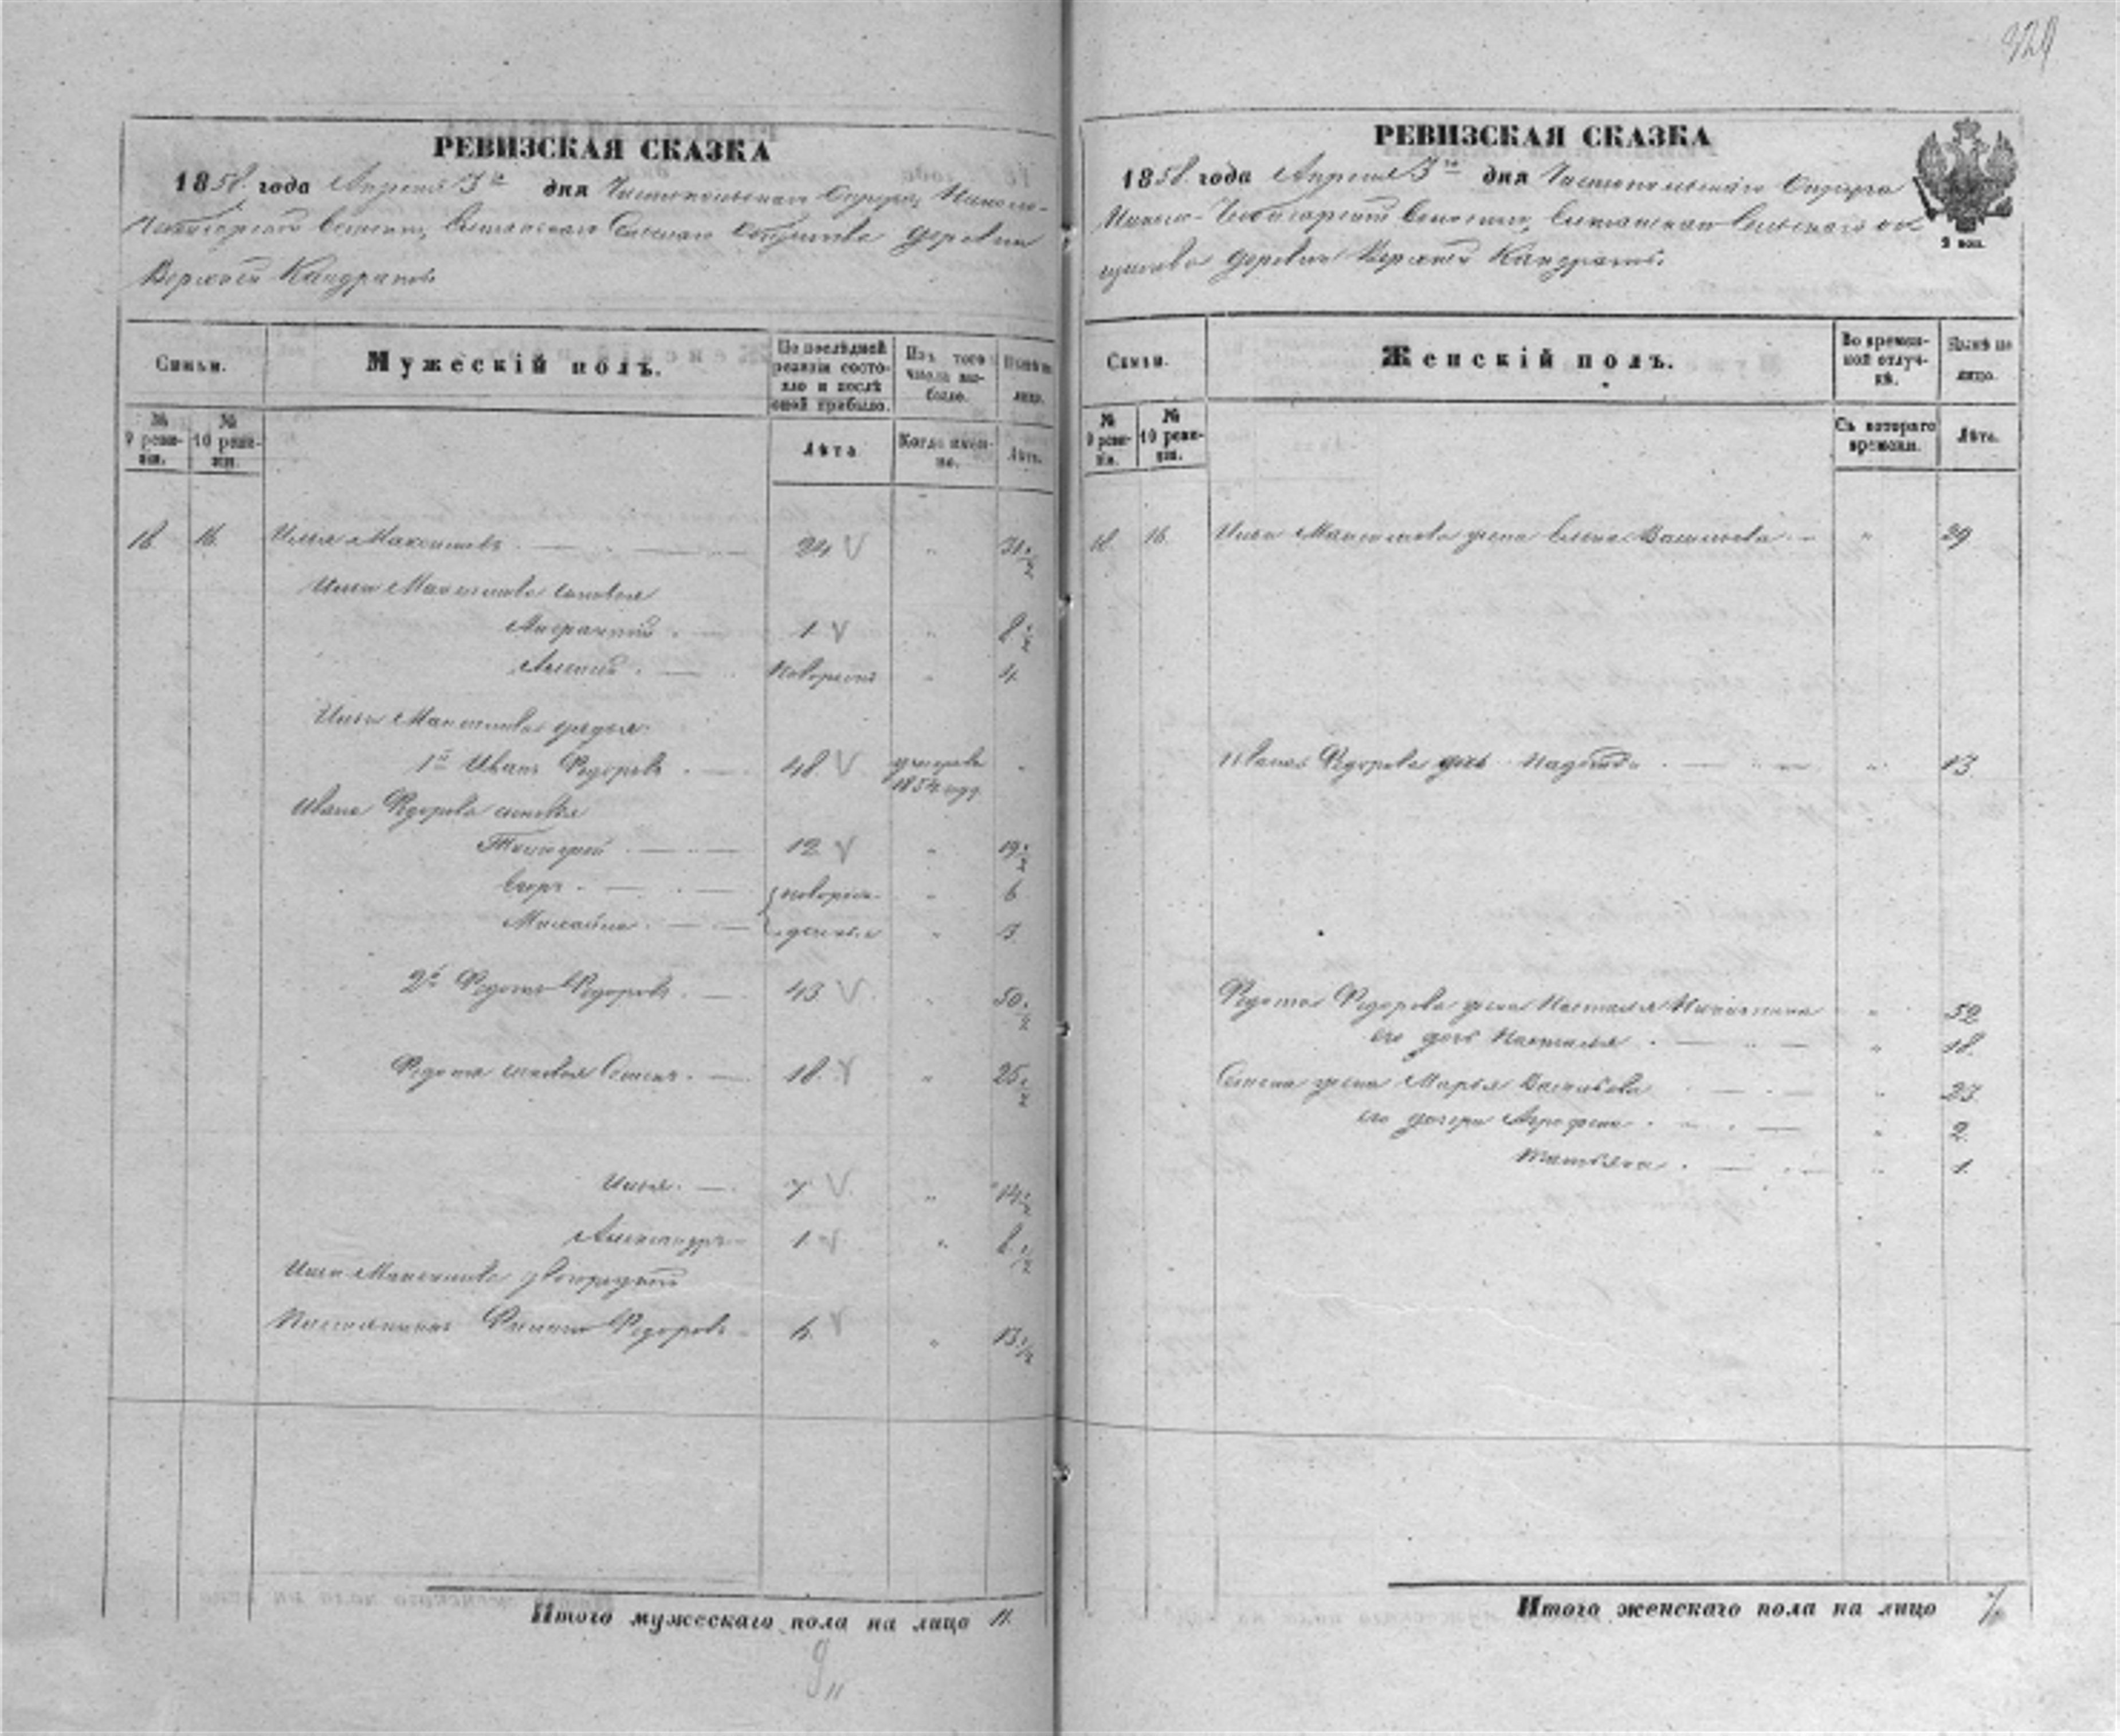 324
РЕВИЗСКАЯ СКАЗКА
1858 года Апреля 3го дня Чистопольскаго Округа, Николо-
волости, Сельскаго Общества деревни
Верхней Кандраты
Семьи.
Мужескій полъ.
По последней ревизіи состояло и послѣ оной прибыло.
Изъ того числа выбыло.
Нынѣ на лицо.
№ 9 ревизіи.
№ 10 ревизіи.
Лѣта
Когда именно.
Лѣта.
18. 16. Илья Максимовъ 24 " 31 1/2
Ильи Максимова сыновья
1 " 8 1/2
Алексей новорожд " 4
Ильи Максимова дядья
1й Иванъ Федоровъ 48 умеръ въ 1854 году "
Ивана Федорова сыновья
12 " 19 1/2
Егоръ новорож- " 6
Михайла денные " 3
2й Федотъ Федоровъ 43 " 50 1/2
Федота сыновья Семенъ 18 " 25 1/2
Илья 7 " 14 1/2
Александръ 1 " 8 1/2
Ильи Максимова двоюродной
Племянникъ Филипъ Федоровъ 6 " 13 1/2
Итого мужескаго пола на лицо 11.
9"
РЕВИЗСКАЯ СКАЗКА
1858 года Апреля 3го дня Чистопольскаго Округа
Николо- волости, Сельскаго об-
щества деревни Верхней Кандраты.
2 коп.
Семьи.
Женскій полъ.
Во временной отлучкѣ.
Нынѣ на лицо.
№ 9 ревизіи.
№ 10 ревизіи.
Съ котораго времени.
Лѣта.
18. 16. Ильи Максимова жена Елена Васильева " 39
Ивана Федорова дочь Надежда " 13
Федота Федорова жена Настасья Никитина " 52
его дочь Настасья " 18.
Семена жена Марья Васильева " 23
его дочери Агрофена " 2
Татьяна " 1.
Итого женскаго пола на лицо 7